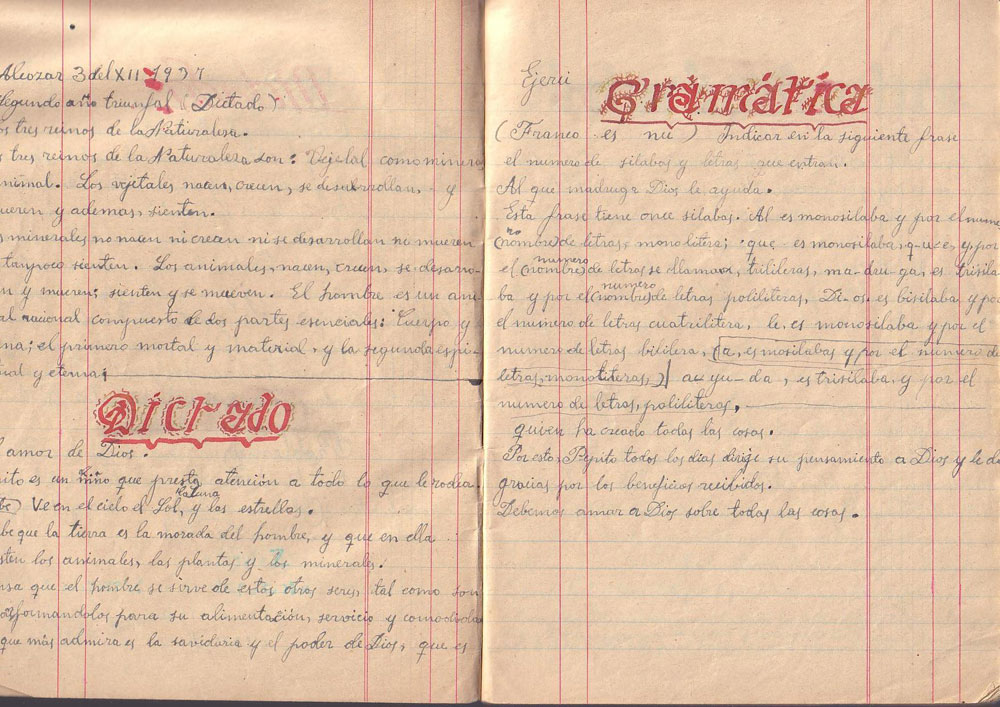 Alcozar 3 del XII 1937
Segundo año triunfal (Dictado)
os tres reinos de la Naturaleza.
s tres reinos de la Naturaleza son: Vejetal como minera
nimal. Los vejetales nacen, crecen, se desarrollan, y
ueren y ademas, sienten.
s minerales no nacen ni crecen ni se desarrollan no mueren
tanpoco sienten. Los animales, nacen, crecen, se desarro-
n y mueren; sienten y se mueven. El hombre es un ani
al racional compuesto de dos partes esenciales: Cuerpo y
ma; el primero mortal y material, y la segunda espi-
ual y eterna;
Dictado
amor de Dios.
ito es un niño que presta atención a todo lo que le rodea.
be) Ve en el cielo el Sol, la luna y las estrellas.
be que la tierra es la morada del hombre, y que en ella
sten los animales, las plantas y los minerales.
nsa que el hombre se sirve de estos otros seres, tal como son
formandolos para su alimentación, servicio y comodida
que más admira es la saviduria y el poder de Dios, que es
Ejerci
Gramática
(Franco es nu) Indicar en la siguiente frase
el numero de silabas y letras que entran.
Al que madruga Dios le ayuda.
Esta frase tiene once silabas. Al es monosilaba y por el nume
ro
(nombre) de letras, monolitera; que, es monosilaba, q-u-e, y por
numero
el (nombre) de letras se llaman, trililiras, ma-dru-ga, es trisila-
numero
ba y por el (nombre) de letras poliliteras, Di-os es bisilaba y por
el numero de letras cuatrilitera, le, es monosilaba y por el
numero de letras bililera, (a, es mosilabas y por el numero de
letras, monoliteras,) a-yu-da, es trisilaba, y por el
numero de letras, poliliteras,
quien ha creado todas las cosas.
Por esto Pepito todos los dias dirije su pensamiento a Dios y le da
gracias por los beneficios recibidos.
Debemos amar a Dios sobre todas las cosas.